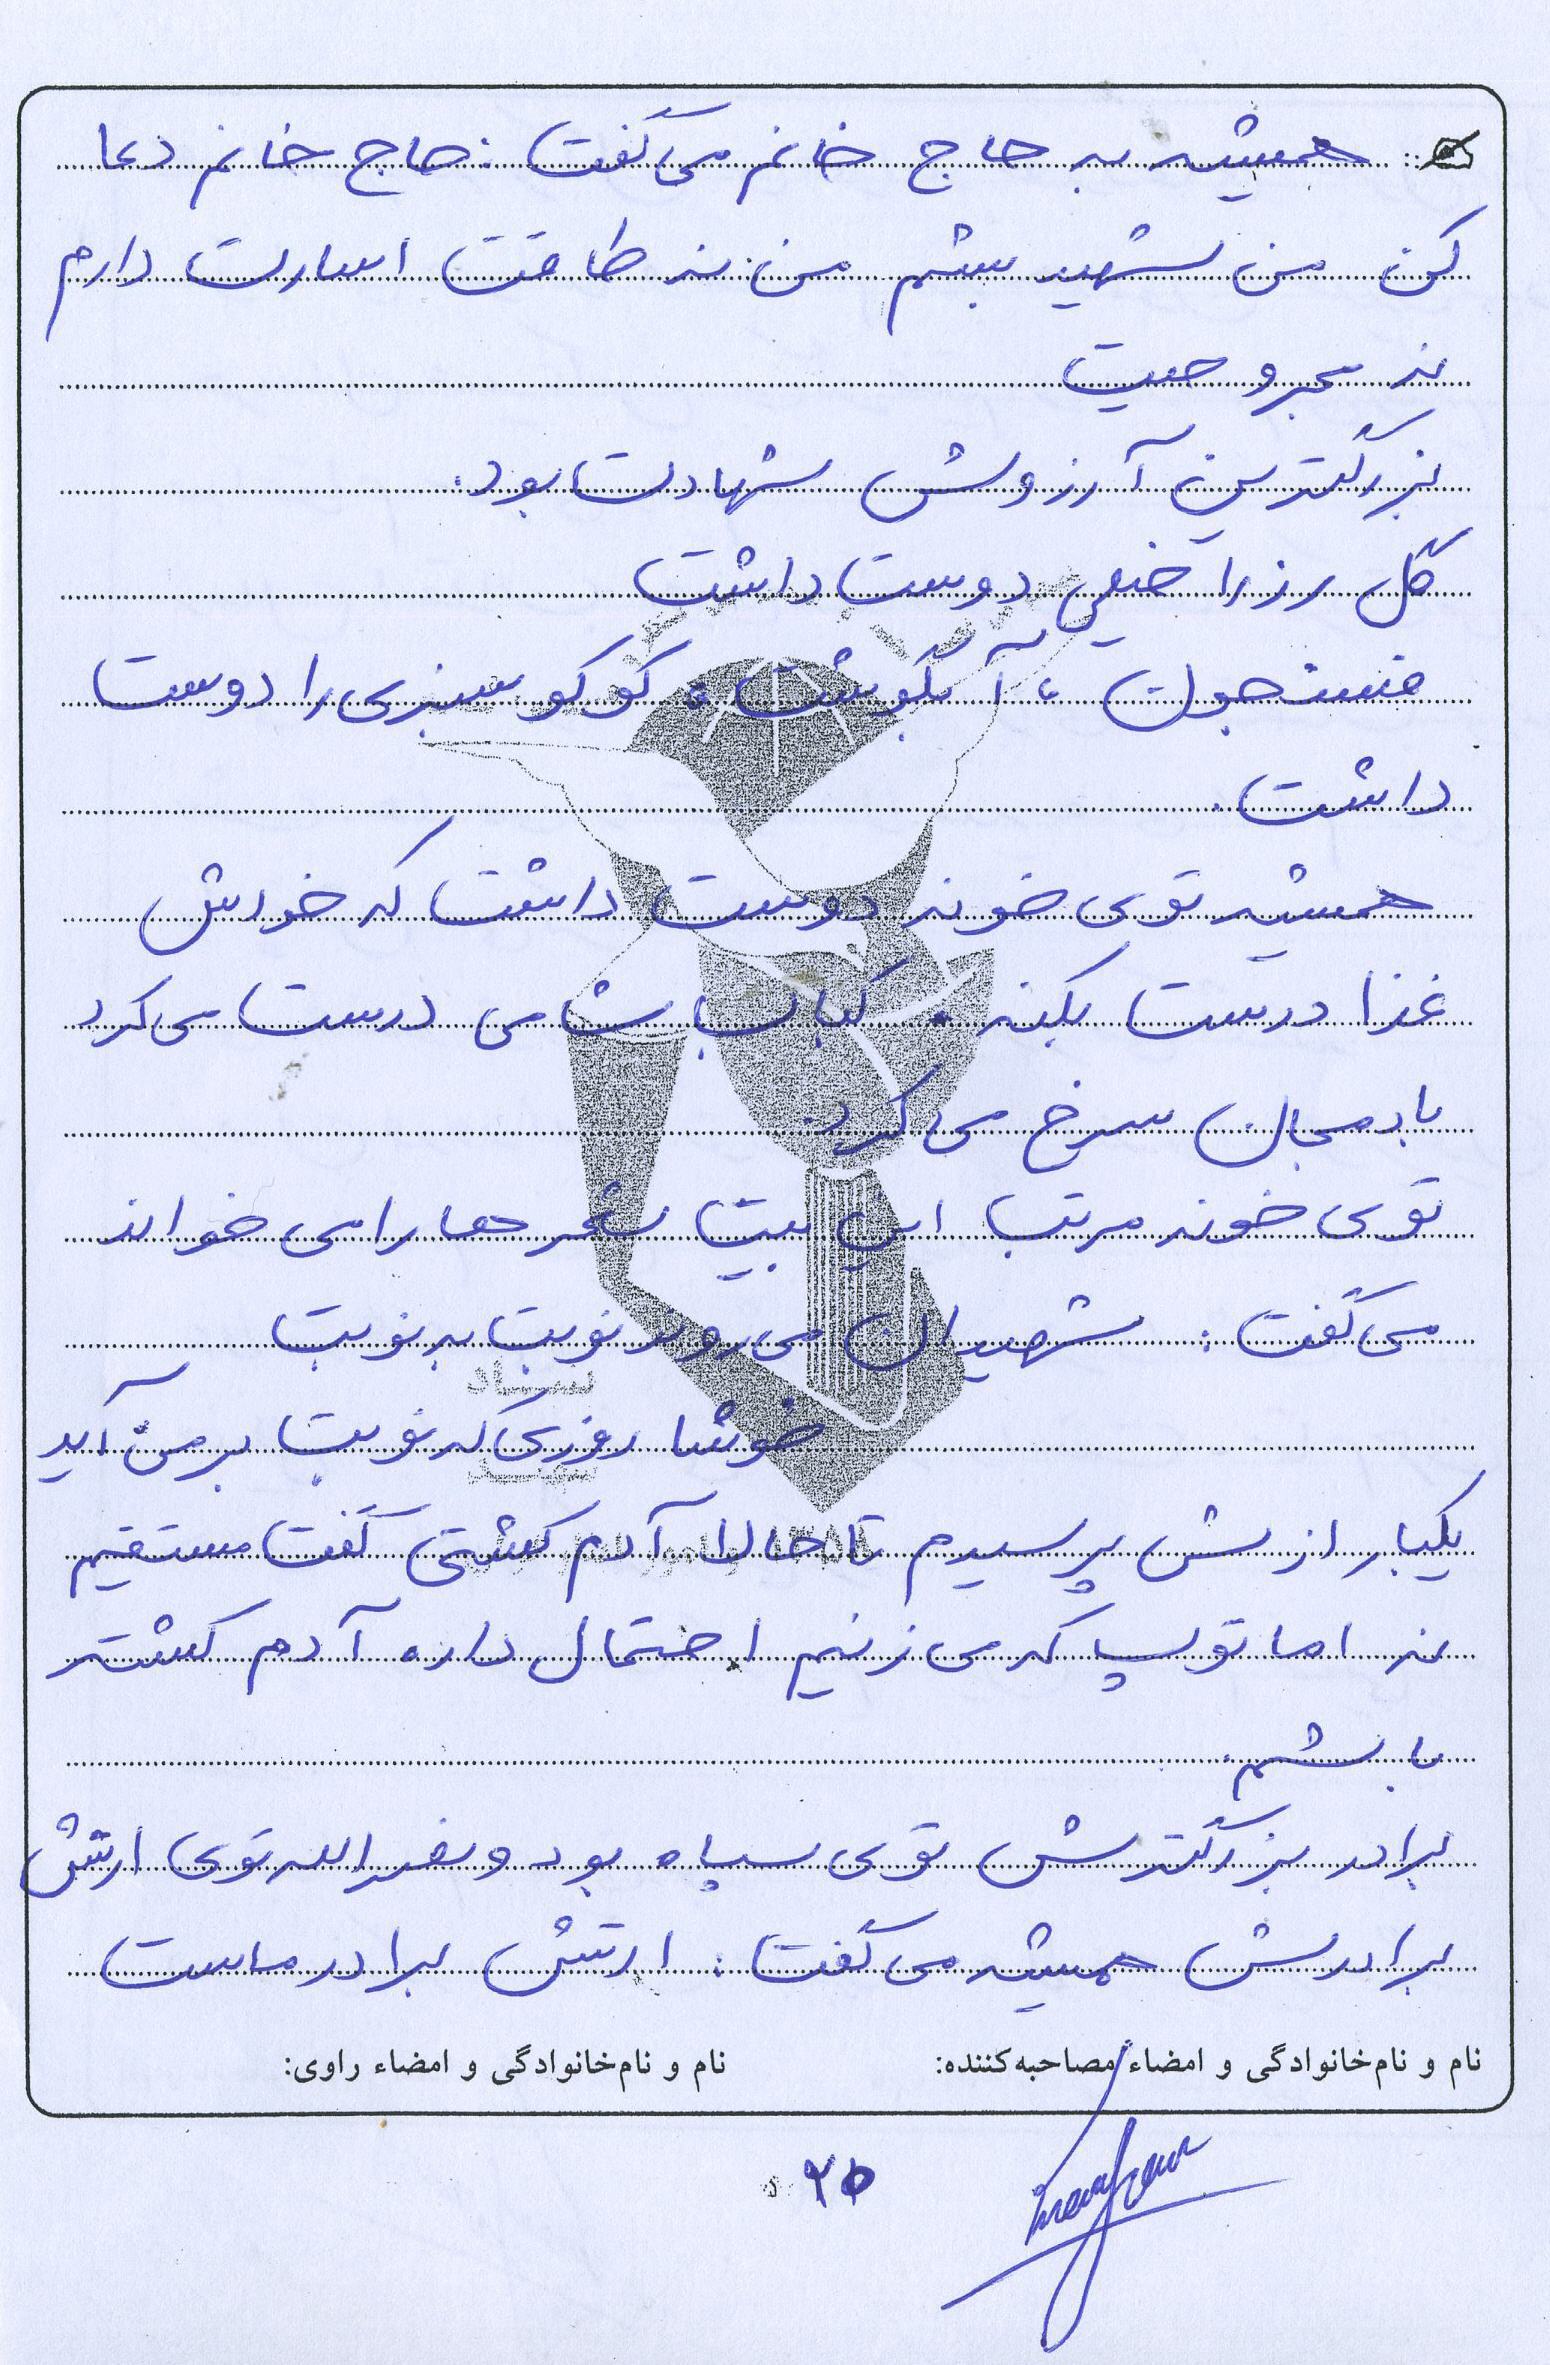 همیشه به حاج خانم می‌گفت: حاج خانم دعا
کن من شهید بشم من نه طاقت اسارت دارم
نه مجروحیت
بزرگترین آرزوش شهادت بود.
گل رز را خیلی دوست داشت
فسنجون، آبگوشت و کوکو سبزی را دوست
داشت.
همیشه توی خونه دوست داشت که خودش
غذا درست بکنه. کباب شامی درست می‌کرد
بادمجان سرخ می‌کرد.
توی خونه مرتب این بیت شعرها را می خواند
می‌گفت: شهیدان می‌روند نوبت به نوبت
خوشا روزی که نوبت بر من آید
یکبار ازش پرسیدم تا حالا آدم کشتی گفت مستقیم
نه اما توپ که می‌زنیم احتمال داره آدم کشته
باشم.
برادر بزرگترش توی سپاه بود و نصراله توی ارتش
برادرش همیشه می‌گفت: ارتش برادر ماست
نام و نام‌خانوادگی و امضاء مصاحبه‌کننده: نام و نام‌خانوادگی و امضاء راوی:
۲۵